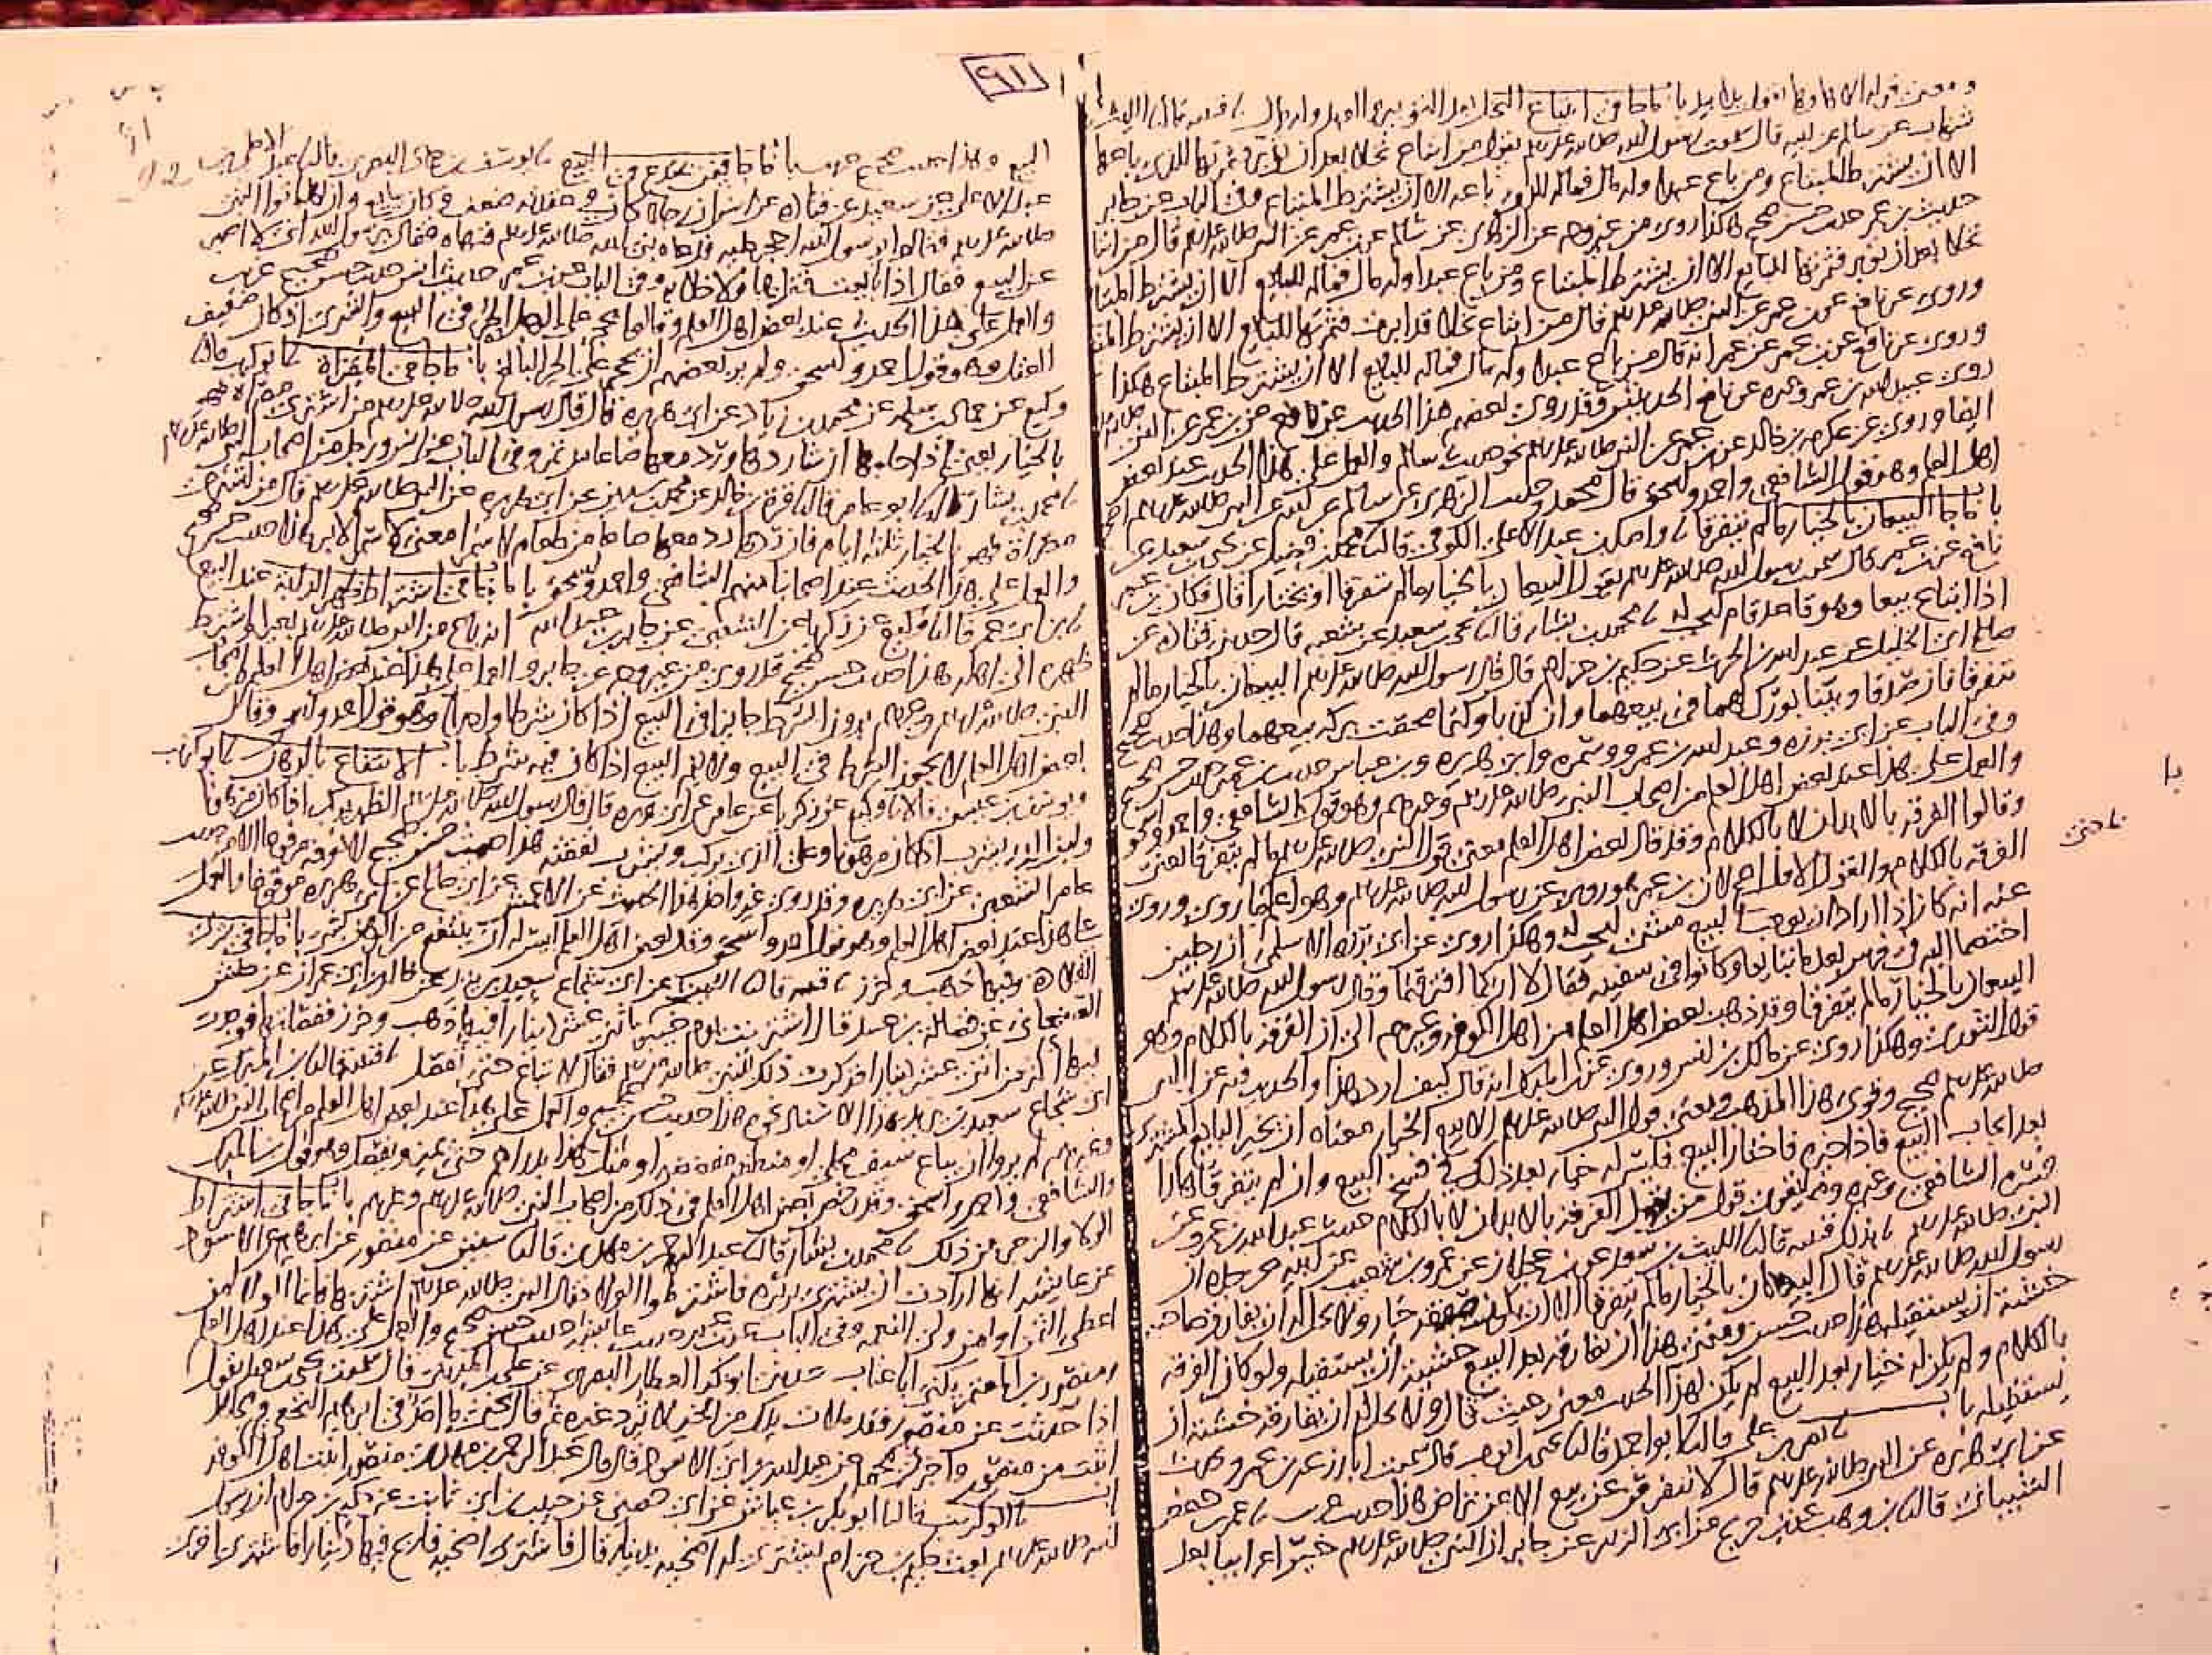 ومعنى قوله الا ها وها يقول يدا بيد باب ما جا في ابتياع النخل بعد التوبير والعبد وله مال قتيبة قال الليث
شهاب عن سالم عن ابيه قال سمعت رسول الله صلى الله عليه وسلم يقول من ابتاع نخلا بعد ان تؤبر فثمرتها للذي باعها
الا ان يشترط المبتاع ومن باع عبدا وله مال فماله للذي باعه الا ان يشترط المبتاع وفي الباب عن جابر
حديث بن عمر حديث حسن صحيح هكذا روى من غير وجه عن الزهري عن سالم عن بن عمر عن النبي صلى الله عليه وسلم قال من ابتاع
نخلا بعد ان تؤبر فثمرتها للبايع الا ان يشترط المبتاع ومن باع عبدا وله مال فماله للبايع الا ان يشترط المبتاع
وروى عن نافع عن بن عمر عن النبي صلى الله عليه وسلم قال من ابتاع نخلا قد ابرت فثمرتها للبايع الا ان يشترط المبتاع
وروى عن نافع عن بن عمر عن عمر انه قال من باع عبدا وله مال فماله للبايع الا ان يشترط المبتاع هكذا
روى عبيد الله بن عمر وغيره عن نافع الحديثين وقد روى بعضهم هذا الحديث عن نافع عن بن عمر عن النبي
ايضا وروى عن عكرمة بن خالد عن بن عمر عن النبي صلى الله عليه وسلم نحو حديث سالم والعمل على هذا الحديث عند بعض
اهل العلم وهو قول الشافعي واحمد واسحق قال محمد وحديث الزهري عن سالم عن ابيه عن النبي صلى الله عليه وسلم اصح
باب ما جا البيعان بالخيار ما لم يتفرقا واصل بن عبد الاعلى الكوفي قال محمد بن فضيل عن يحيى بن سعيد عن
نافع عن بن عمر قال سمعت رسول الله صلى الله عليه وسلم يقول البيعان بالخيار ما لم يتفرقا او يختارا قال فكان بن عمر
اذا ابتاع بيعا وهو قاعد قام ليجب له محمد بن بشار قال يحيى بن سعيد عن شعبه قال حدثني قتاده عن
صالح ابي الخليل عن عبد الله بن الحرث عن حكيم بن حزام قال قال رسول الله صلى الله عليه وسلم البيعان بالخيار ما لم
يتفرقا فان صدقا وبينا بورك لهما في بيعهما وان كذبا وكتما محقت بركه بيعهما وهذا حديث صحيح
وفي الباب عن ابي برزه وعبد الله بن عمرو وسمره وابي هريره وبن عباس حديث بن عمر حديث حسن صحيح
والعمل على هذا عند بعض اهل العلم من اصحاب النبي صلى الله عليه وسلم وغيرهم وهو قول الشافعي واحمد واسحق
وقالوا الفرقه بالابدان لا بالكلام وقد قال بعض اهل العلم معنى قول النبي صلى الله عليه وسلم ما لم يتفرقا يعني
الفرقه بالكلام والقول الاول اصح لان بن عمر هو روى عن رسول الله صلى الله عليه وسلم وهو اعلم بما روى وروى
عنه انه كان اذا اراد ان يوجب البيع مشى ليجب له وهكذا روى عن ابي برزه الاسلمي ان رجلين
اختصما اليه في فرس بعد ما تبايعا وكانوا في سفينه فقال لا اراكما افترقتما وقال رسول الله صلى الله عليه وسلم
البيعان بالخيار ما لم يتفرقا وقد ذهب بعض اهل العلم من اهل الكوفه وغيرهم الى ان الفرقه بالكلام وهو
قول الثوري وهكذا روى عن مالك بن انس وروى عن بن المبارك انه قال كيف ارد هذا والحديث فيه عن النبي
صلى الله عليه وسلم صحيح وقوى هذا المذهب ومعنى قول النبي صلى الله عليه وسلم الا بيع الخيار معناه ان يخير البايع المشتري
بعد ايجاب البيع فاذا خيره فاختار البيع فليس له خيار بعد ذلك في فسخ البيع وان لم يتفرقا هكذا
فسره الشافعي وغيره ومما يقوي قول من يقول الفرقه بالابدان لا بالكلام حديث عبد الله بن عمرو عن
النبي صلى الله عليه وسلم بذلك قتيبه قال الليث بن سعد عن بن عجلان عن عمرو بن شعيب عن ابيه عن جده ان
رسول الله صلى الله عليه وسلم قال البيعان بالخيار ما لم يتفرقا الا ان تكون صفقه خيار ولا يحل له ان يفارق صاحبه
خشيه ان يستقيله هذا حديث حسن ومعنى هذا ان يفارقه بعد البيع خشية ان يستقيله ولو كان الفرقه
بالكلام ولم يكن له خيار بعد البيع لم يكن لهذا الحديث معنى حيث قال ولا يحل له ان يفارقه خشية ان
يستقيله باب نصر بن علي قال ابو احمد قال يحيى بن ايوب قال سمعت ابا زرعه بن عمرو
عن ابي هريره عن النبي صلى الله عليه وسلم قال لا يتفرقن عن بيع الا عن تراض هذا حديث غريب عمر بن حفص
الشيباني قال بن وهب عن بن جريج عن ابي الزبير عن جابر ان النبي صلى الله عليه وسلم خير اعرابيا بعد
٩١١
البيع وهذا حديث صحيح غريب باب ما جا فيمن يخدع في البيع يوسف بن حماد البصري قال عبد الاعلى بن
عبد الاعلى عن سعيد عن قتاده عن انس ان رجلا كان في عقدته ضعف وكان يبايع وان اهله اتوا النبي
صلى الله عليه وسلم فقالوا يرسول الله احجر عليه فدعاه نبي الله صلى الله عليه وسلم فنهاه فقال يرسول الله اني لا اصبر
عن البيع فقال اذا بايعت فقل ها ولا خلابه وفي الباب عن بن عمر حديث انس حديث حسن صحيح غريب
والعمل على هذا الحديث عند بعض اهل العلم وقالوا يحجر على الرجل الحر في البيع والشرى اذا كان ضعيف
العقل وهو قول احمد واسحق ولم ير بعضهم ان يحجر على الحر البالغ باب ما جا في المصراة ابو كريب قال
وكيع عن حماد بن سلمه عن محمد بن زياد عن ابي هريره قال قال رسول الله صلى الله عليه وسلم من اشترى مصراه فهو
بالخيار يعني اذا حلبها ان شا ردها ورد معها صاعا من تمر وفي الباب عن انس ورجل من اصحاب النبي صلى الله عليه وسلم
محمد بن بشار قال ابو عامر قال قرة بن خالد عن محمد بن سيرين عن ابي هريره عن النبي صلى الله عليه وسلم قال من اشترى
مصراة فهو بالخيار ثلثه ايام فان ردها رد معها صاعا من طعام لا سمرا معنى لا سمرا لا بر هذا حديث حسن صحيح
والعمل على هذا الحديث عند اصحابنا منهم الشافعي واحمد واسحق باب ما جا في اشتراط ظهر الدابه عند البيع
بن ابي عمر قال وكيع عن زكريا عن الشعبي عن جابر بن عبد الله انه باع من النبي صلى الله عليه وسلم بعيرا واشترط
ظهره الى اهله هذا حديث حسن صحيح قد روى من غير وجه عن جابر والعمل على هذا عند بعض اهل العلم من اصحاب
النبي صلى الله عليه وسلم وغيرهم يرون الشرط جايزا في البيع اذا كان شرطا واحدا وهو قول احمد واسحق وقال
بعض اهل العلم لا يجوز الشرط في البيع ولا يتم البيع اذا كان فيه شرط باب الانتفاع بالرهن ابو كريب
ويوسف بن عيسى قالا وكيع عن زكريا عن عامر عن ابي هريره قال قال رسول الله صلى الله عليه وسلم الظهر يركب اذا كان مرهونا
ولبن الدر يشرب اذا كان مرهونا وعلى الذي يركب ويشرب نفقته هذا حديث حسن صحيح لا نعرفه مرفوعا الا من حديث
عامر الشعبي عن ابي هريره وقد روى غير واحد هذا الحديث عن الاعمش عن ابي صالح عن ابي هريره موقوفا والعمل
على هذا عند بعض اهل العلم وهو قول احمد واسحق وقال بعض اهل العلم ليس له ان ينتفع من الرهن بشي باب ما جا في شرى
القلاده وفيها ذهب وخرز قتيبه قال الليث عن ابي شجاع سعيد بن يزيد عن خالد بن ابي عمران عن حنش
الصنعاني عن فضاله بن عبيد قال اشتريت يوم خيبر باثني عشر دينارا فيها ذهب وخرز ففصلتها فوجدت
فيها اكثر من اثني عشر دينارا فذكرت ذلك للنبي صلى الله عليه وسلم فقال لا تباع حتى تفصل قتيبه قال بن المبارك عن
ابي شجاع سعيد بن يزيد بهذا الاسناد نحوه هذا حديث حسن صحيح والعمل على هذا عند بعض اهل العلم من اصحاب النبي صلى الله عليه وسلم
وغيرهم لم يروا ان يباع سيف محلى او منطقه مفضضه او مثل هذا بدراهم حتى يميز ويفصل وهو قول بن المبارك
والشافعي واحمد واسحق وقد رخص بعض اهل العلم في ذلك من اصحاب النبي صلى الله عليه وسلم وغيرهم باب ما جا في اشتراط
الولا والزجر عن ذلك محمد بن بشار قال عبد الرحمن بن مهدي قال سفين عن منصور عن ابرهيم عن الاسود
عن عايشه انها ارادت ان تشتري بريره فاشترطوا الولا فقال النبي صلى الله عليه وسلم اشتريها فانما الولا لمن
اعطى الثمن او لمن ولي النعمه وفي الباب عن بن عمر حديث عايشه حديث حسن صحيح والعمل على هذا عند اهل العلم
ومنصور بن المعتمر يكنى ابا عتاب حدثنا ابو بكر العطار البصري عن علي بن المديني قال سمعت يحيى بن سعيد يقول
اذا حدثت عن منصور فقد ملات يدك من الخير لا ترد غيره ثم قال يحيى ما اجد في ابرهيم النخعي ومجاهد
اثبت من منصور واخبرني محمد عن عبد الله بن ابي الاسود قال قال عبد الرحمن بن مهدي منصور اثبت اهل الكوفه
ابو كريب قال ابو بكر بن عياش عن ابي حصين عن حبيب بن ابي ثابت عن حكيم بن حزام ان رسول
الله صلى الله عليه وسلم بعث حكيم بن حزام يشتري له اضحيه بدينار قال فاشترى اضحيه فاربح فيها دينارا فاشترى اخرى